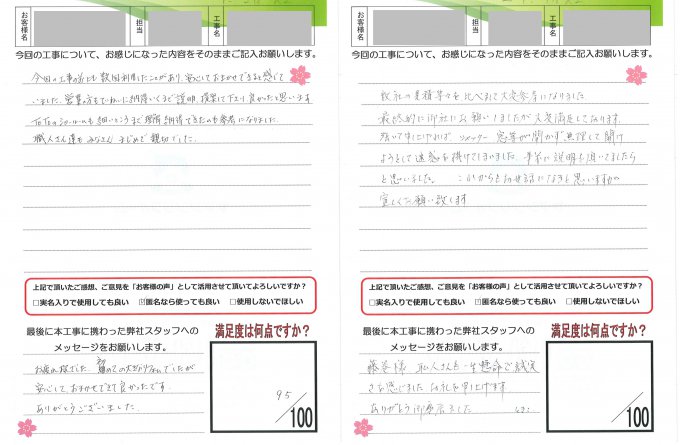 お客様名
担当
工事名
今回の工事について、お感じになった内容をそのままご記入お願いします。
今回の工事の前にも数回利用したことがあり、安心しておまかせできると感じて
いました。営業の方もていねいに納得いくまで説明、提案して下さり良かったと思います
TOTOのショールームも細いところまで理解納得できたのも参考になりました。
職人さん達もみなさんまじめで親切でした。
上記で頂いたご感想、ご意見を「お客様の声」として活用させて頂いてよろしいですか？
□実名入りで使用しても良い ☑匿名なら使っても良い □使用しないでほしい
最後に本工事に携わった弊社スタッフへの
メッセージをお願いします。
お風呂
初めての
でしたが
安心して、おまかせできて良かったです。
ありがとうございました。
満足度は何点ですか？
95
/100
お客様名
担当
工事名
今回の工事について、お感じになった内容をそのままご記入お願いします。
数社の見積等々を比べまして大変参考になりました
最終的に御社にお願いしましたが大変満足しております。
シャッター 窓等が開かず無理して開け
ようとして迷惑を掛けてしまいました。事前に説明を頂いてましたら
と思いました。 これからもお世話になると思いますので
宜しくお願い致します
上記で頂いたご感想、ご意見を「お客様の声」として活用させて頂いてよろしいですか？
□実名入りで使用しても良い ☑匿名なら使っても良い □使用しないでほしい
最後に本工事に携わった弊社スタッフへの
メッセージをお願いします。
様 職人さんも一生懸命で誠実
さを感じました お礼を申上げます
ありがとう御座居ました
満足度は何点ですか？
/100